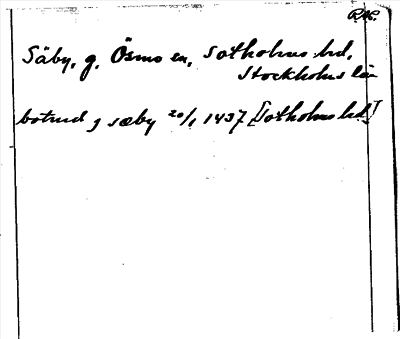 Säby, g. Ösmo sn, Sotholms hd,
Stockholms län
botwid j sæby 20/1 1437 [Sotholms hd]